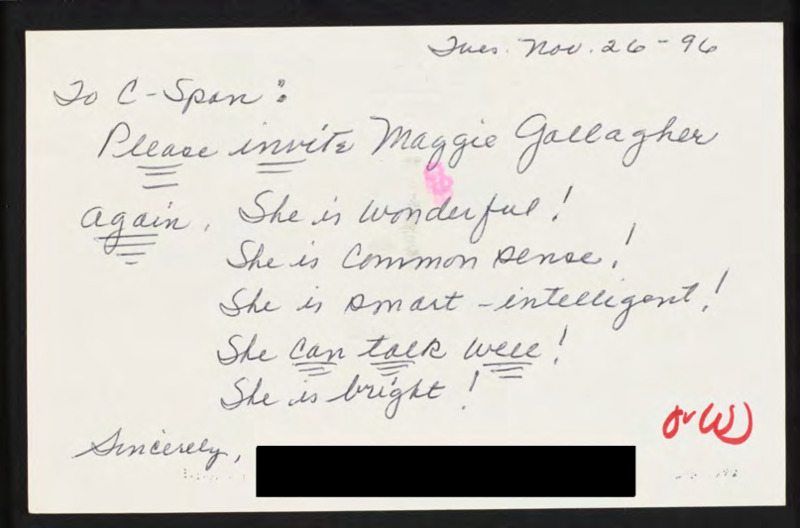 Tues. Nov. 26-96
To C-Span:
Please invite Maggie Gallagher
again. She is wonderful!
She is common sense!
She is smart - intelligent!
She can talk well!
She is bright!
Sincerely,